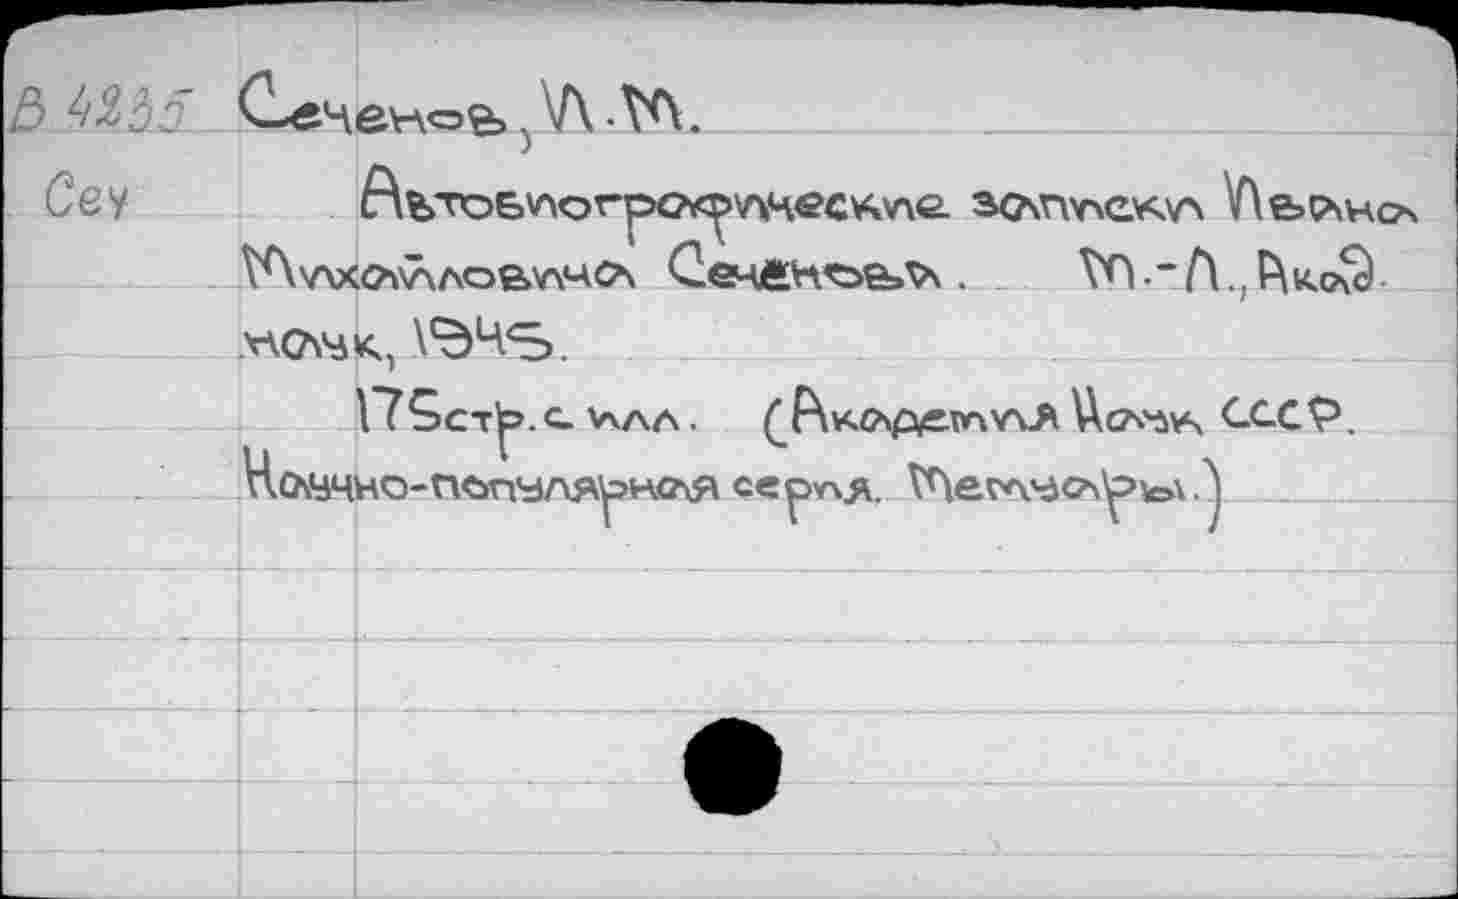 В 4235 Сеченов, И.М.
Сеч Автобиографические записки Ивана
Михайловича Сечёнова. М.-Л., Акад.
наук, 1945.
175стр. с илл. (Академия Наук СССР.
Научно-популярная серия. Мемуары.)